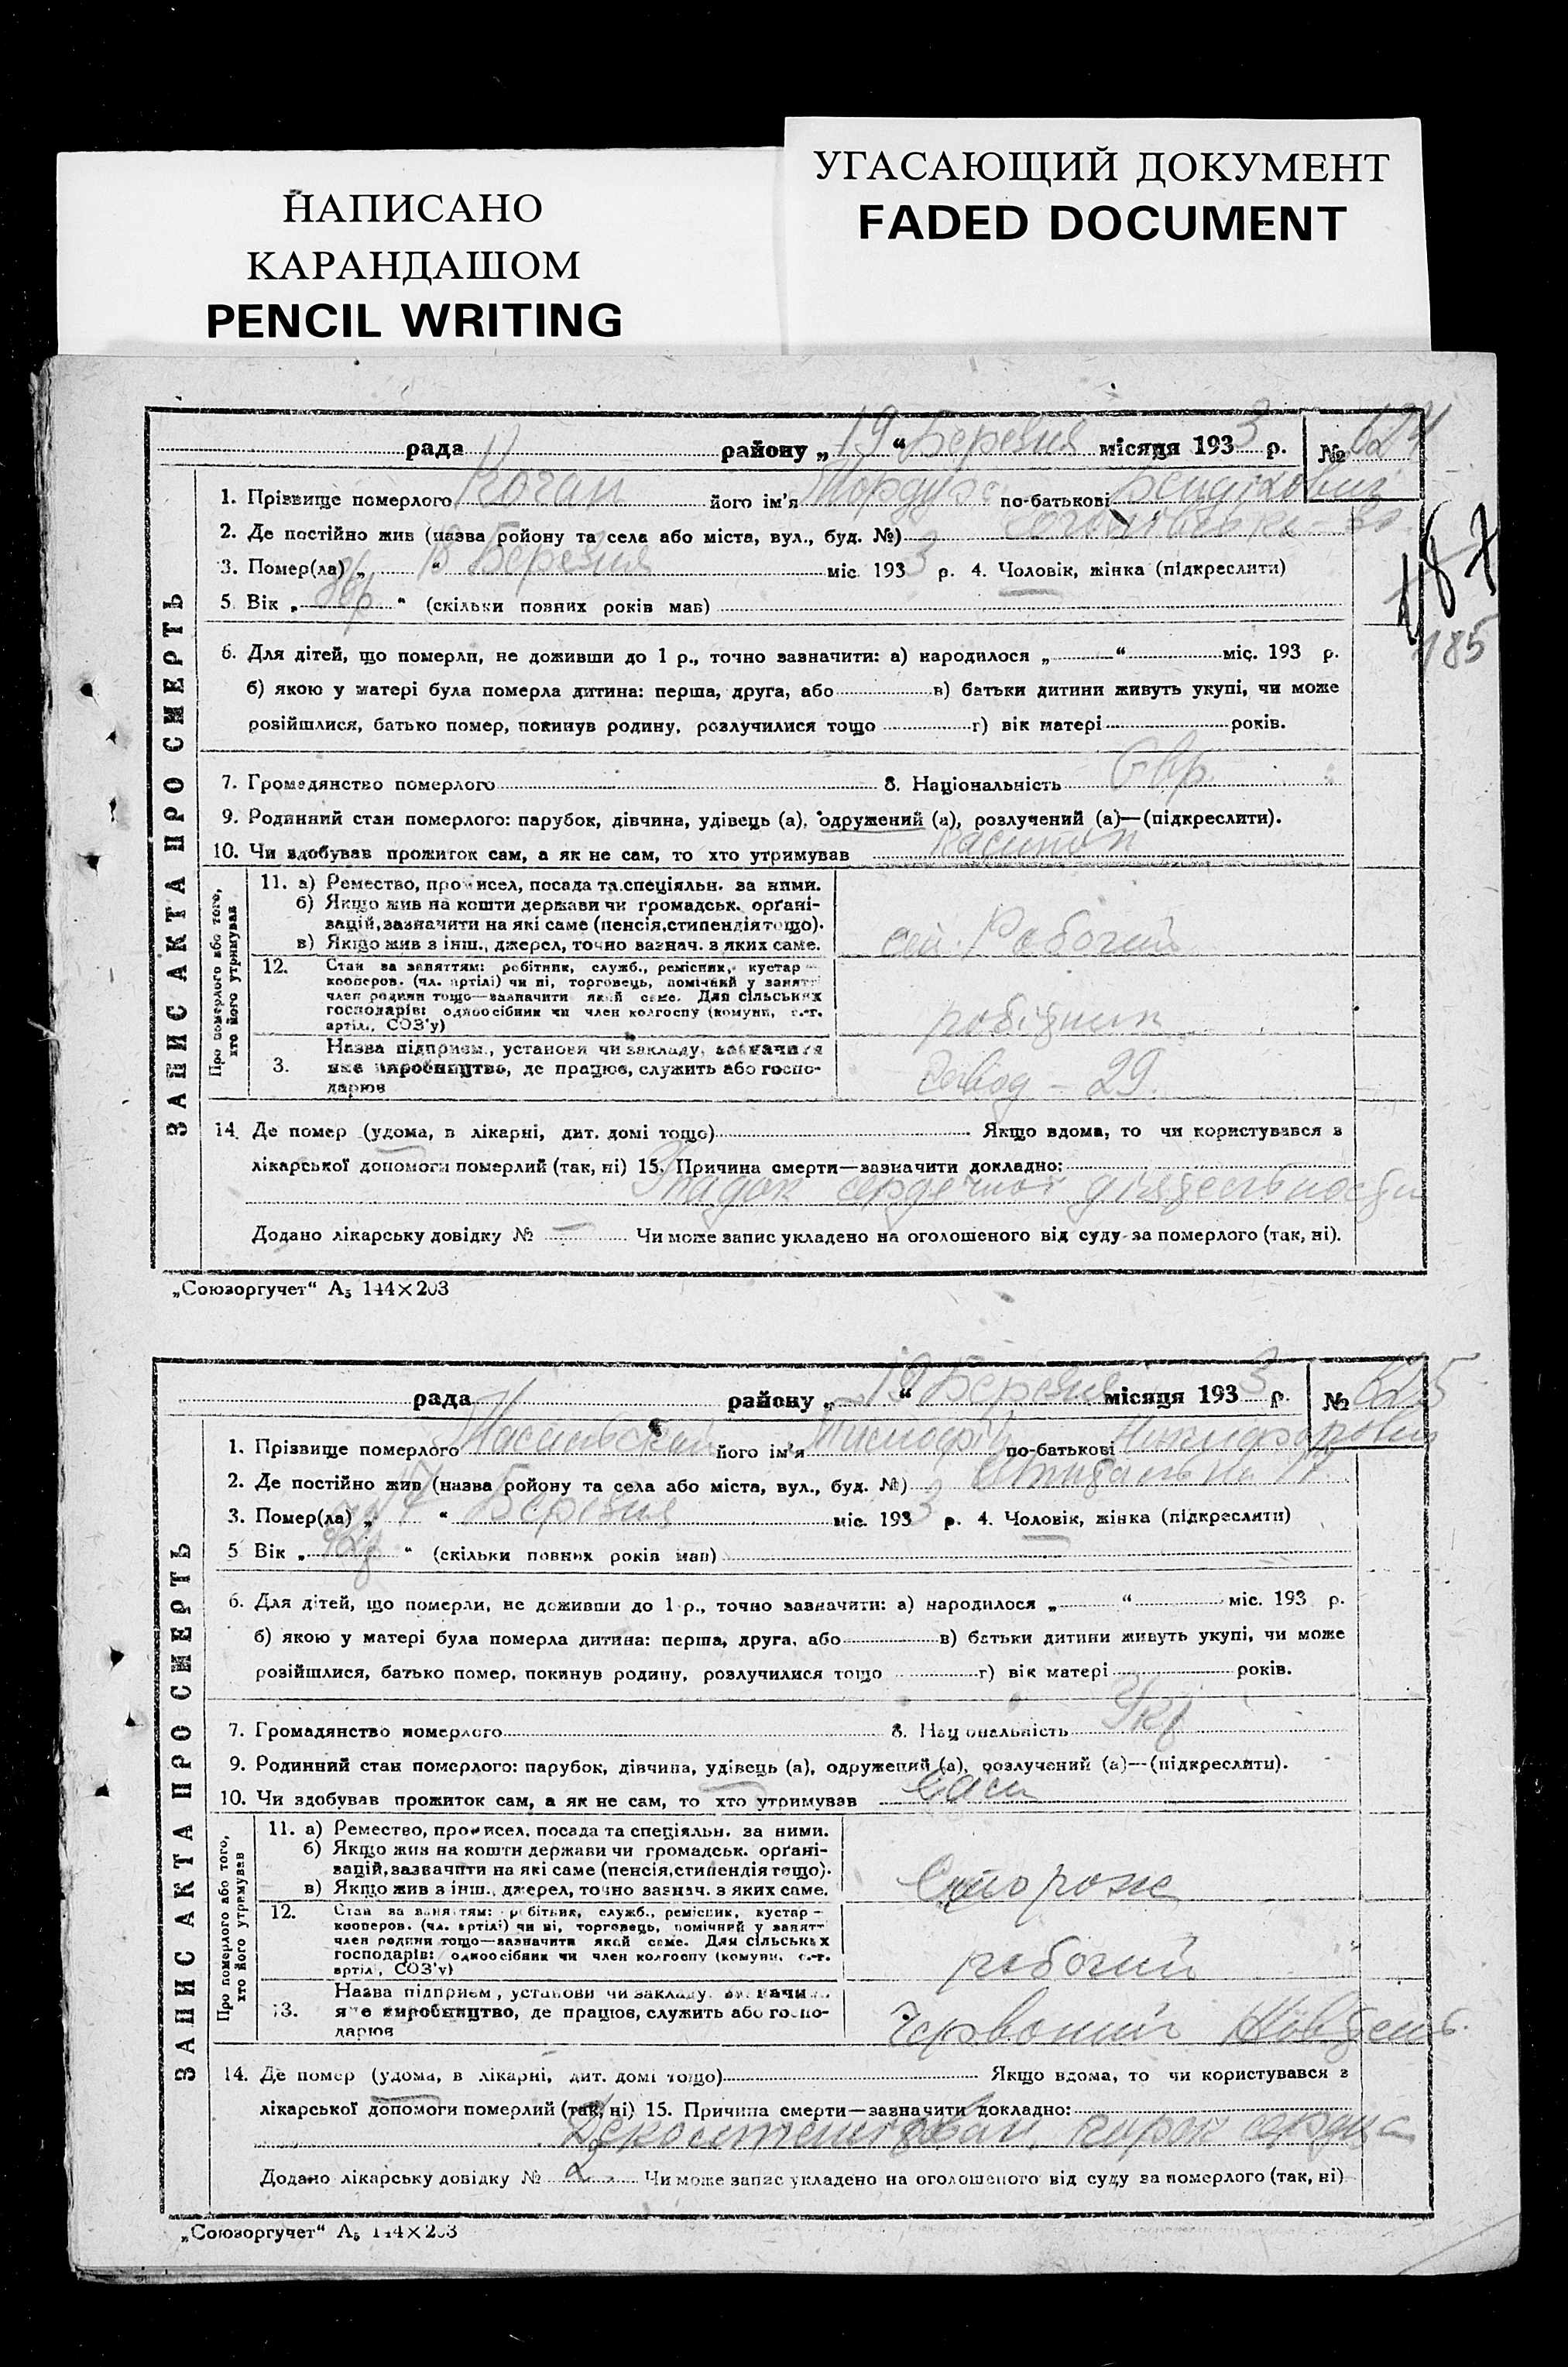 НАПИСАНО
КАРАНДАШОМ
PENCIL WRITING
УГАСАЮЩИЙ ДОКУМЕНТ
FADED DOCUMENT
рада району „ 19 “ Березня місяця 193 3 р. № 624
1. Прізвище померлого Коган його ім'я Мордух по-батькові
187
2. Де постійно жив (назва ройону та села або міста, вул., буд. №)
3. Помер(ла) „ 18 “ Березня міс. 193 3 р. 4. Чоловік, жінка (підкреслити)
5. Вік „ “ (скільки повних років мав)
185
6. Для дітей, що померли, не доживши до 1 р., точно зазначити: а) народилося „ “ міс. 193 р.
б) якою у матері була померла дитина: перша, друга, або в) батьки дитини живуть укупі, чи може
розійшлися, батько помер, покинув родину, розлучилися тощо г) вік матері років.
7. Громадянство померлого 8. Національність Євр.
9. Родинний стан померлого: парубок, дівчина, удівець (а), одружений (а), розлучений (а)—(підкреслити).
10. Чи здобував прожиток сам, а як не сам, то хто утримував
ЗАПИС АКТА ПРО СМЕРТЬ
Про померлого або того, хто його утримував
11. а) Ремество, промисел, посада та спеціяльн. за ними.
б) Якщо жив на кошти держави чи громадськ. органі-
зацій, зазначити на які саме (пенсія, стипендія тощо).
в) Якщо жив з інш., джерел, точно зазнач. з яких саме.
Робочий
12. Стан за заняттям: робітник, служб., ремісник, кустар —
кооперов. (чл. артілі) чи ні, торговець, помічний у занятт
член родини тощо—зазначити який саме. Для сільських
господарів: одноосібник чи член колгоспу (комуни, с.-г.
артілі, СОЗ'у)
робітник
3. Назва підприєм., установи чи закладу, зазначити
яке виробництво, де працює, служить або госпо-
дарює
Завод – 29.
14. Де помер (удома, в лікарні, дит. домі тощо) Якщо вдома, то чи користувався з
лікарської допомоги померлий (так, ні) 15. Причина смерти—зазначити докладно:
Упадок сердечної діятельности
Додано лікарську довідку № — Чи може запис укладено на оголошеного від суду за померлого (так, ні).
„Союзоргучет“ А5 144×203
рада району „ 19 “ Березня місяця 193 3 р. № 625
1. Прізвище померлого його ім'я Тимофій по-батькові Никифорович
2. Де постійно жив (назва ройону та села або міста, вул., буд. №)
3. Помер(ла) „ 17 “ Березня міс. 193 3 р. 4. Чоловік, жінка (підкреслити)
5 Вік „ “ (скільки повних років мав)
6. Для дітей, що померли, не доживши до 1 р., точно зазначити: а) народилося „ “ міс. 193 р.
б) якою у матері була померла дитина: перша, друга, або в) батьки дитини живуть укупі, чи може
розійшлися, батько помер, покинув родину, розлучилися тощо г) вік матері років.
7. Громадянство померлого 8. Нац ональність Укр
9. Родинний стан померлого: парубок, дівчина, удівець (а), одружений (а), розлучений (а)—(підкреслити).
10. Чи здобував прожиток сам, а як не сам, то хто утримував Сам
ЗАПИС АКТА ПРО СМЕРТЬ
Про померлого або того, хто його утримував
11. а) Ремество, промисел, посада та спеціяльн. за ними.
б) Якщо жив на кошти держави чи громадськ. органі-
зацій, зазначити на які саме (пенсія, стипендія тощо).
в) Якщо жив з інш., джерел, точно зазнач. з яких саме.
Сторож
12. Стан за заняттям: робітник, служб., ремісник, кустар —
кооперов. (чл. артілі) чи ні, торговець, помічний у занятт
член родини тощо—зазначити який саме. Для сільських
господарів: одноосібник чи член колгоспу (комуни, с.-г.
артілі, СОЗ'у)
робочий
13. Назва підприєм., установи чи закладу, зазначи
яке виробництво, де працює, служить або госпо-
дарює
Червоний Жовтень.
14. Де помер (удома, в лікарні, дит. домі тощо) Якщо вдома, то чи користувався з
лікарської допомоги померлий (так, ні) 15. Причина смерти—зазначити докладно:
порок сердца
Додано лікарську довідку № 2. Чи може запис укладено на оголошеного від суду за померлого (так, ні)
„Союзоргучет“ А5 144×203